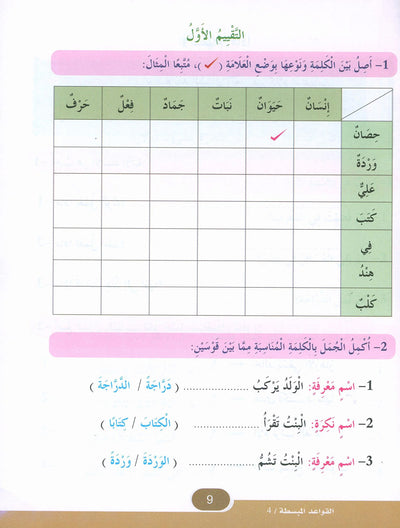 التَّقْيِيمُ الأَوَّلُ
1- أَصِلُ بَيْنَ الكَلِمَةِ وَنَوْعِهَا بِوَضْعِ العَلامَةِ (✓)، مُتَّبِعًا المِثَالَ:
إِنْسَانٌ حَيَوَانٌ نَبَاتٌ جَمَادٌ فِعْلٌ حَرْفٌ
حِصَانٌ ✓
وَرْدَةٌ
عَلِيٌّ
كَتَبَ
فِي
هِنْدُ
كَلْبٌ
2- أُكْمِلُ الجُمَلَ بِالكَلِمَةِ المُنَاسَبَةِ مِمَّا بَيْنَ قَوْسَيْنِ:
1- اسْمٍ مَعْرِفَةٍ: الْوَلَدُ يَرْكَبُ ..................... ( دَرَّاجَةً / الدَّرَّاجَةَ )
2- اسْمٍ نَكِرَةٍ: الْبِنْتُ تَقْرَأُ ..................... ( الْكِتَابَ / كِتَابًا )
3- اسْمٍ مَعْرِفَةٍ: الْبِنْتُ تَشُمُّ ..................... ( الوَرْدَةَ / وَرْدَةً )
9
القواعد المبسطة / 4